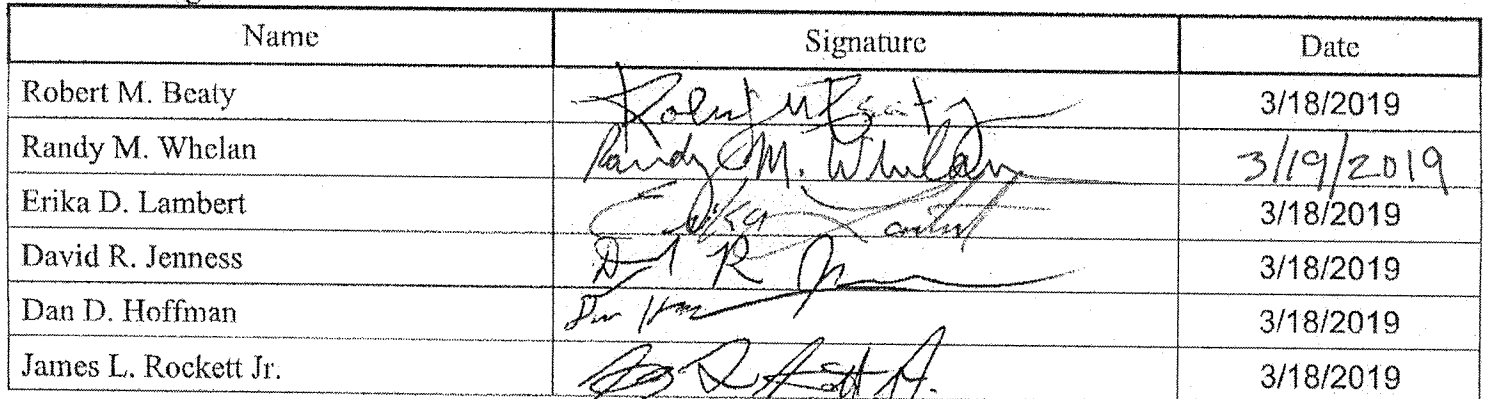 Name Signature Date
Robert M. Beaty Robert M Beaty 3/18/2019
Randy M. Whelan Randy M. Whelan 3/19/2019
Erika D. Lambert Erika 3/18/2019
David R. Jenness D R 3/18/2019
Dan D. Hoffman 3/18/2019
James L. Rockett Jr. 3/18/2019